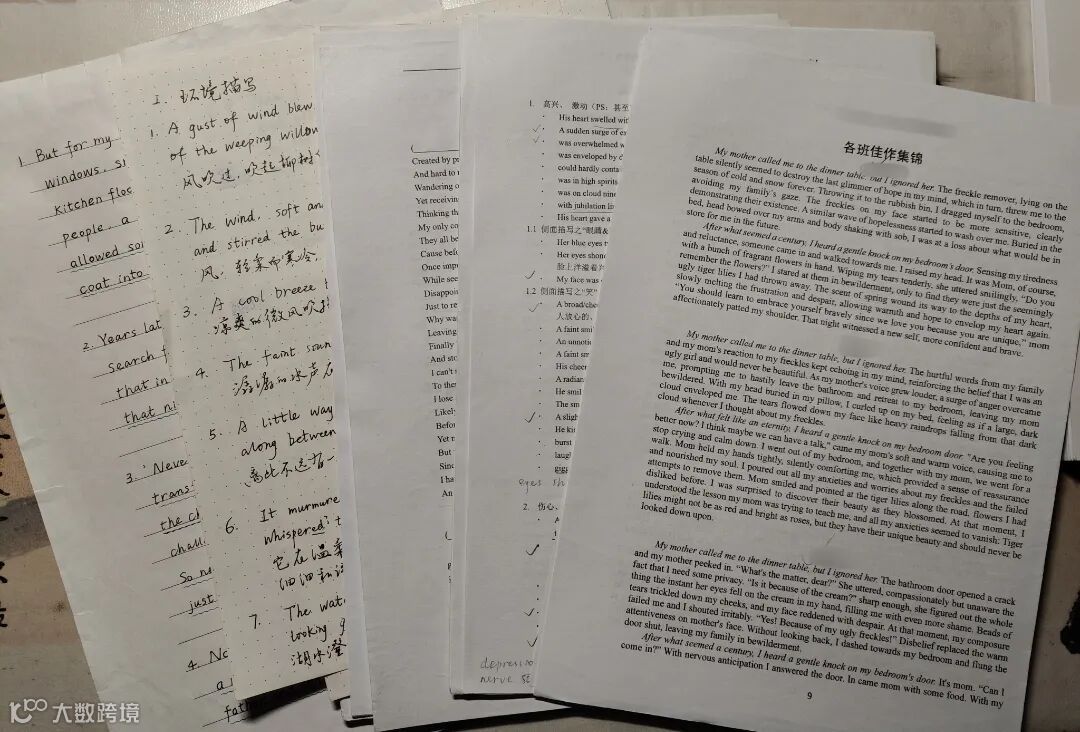 1. But for my
windows, s
kitchen floc
people. a
allowed soi
coat into
2. Years lat
search f
that in
that ni
3. Neve
trans
the cl
chall
So n
just
4. No
a
fath
I. 环境描写
1. A gust of wind blew
of the weeping willow
风吹过,吹起柳树
2. The wind, soft an
and stirred the bu
风,轻柔而寒冷
3. A cool breeze
凉爽的微风吹
4. The faint soun
潺潺的水声
5. A little way
along between
离此不远有一
6. It murmure
whispered t
它在温柔
7. The wat
looking g
湖水澄
Created by p
And hard to
Wandering o
Yet receiving
Thinking th
My only co
They all be
Cause befo
Once imp
While see
Disappoin
Just to re
Why wa
Leaving
Finally
And sto
I can't
To the
I lose
Likel
Befo
Yet n
But
Sinc
I ha
An
1. 高兴、激动(PS: 甚至
His heart swelled with
A sudden surge of ex
was overwhelmed w
was enveloped by
could hardly conta
was in high spirits
was on cloud nine
with jubilation
His heart gave a
1.1 侧面描写之“眼睛&
Her blue eyes t
Her eyes shone
脸上洋溢着
My face was
1.2 侧面描写之“笑”
A broad/che
人放心的、
A faint smil
An unnotic
A faint sm
His chee
A radian
He smile
The sm
A sligh
He ki
burst
laugh
eyes sh
2. 伤心、
depression
nerve
各班佳作集锦
My mother called me to the dinner table, but I ignored her. The freckle remover, lying on the
table silently seemed to destroy the last glimmer of hope in my mind, which in turn, threw me to the
season of cold and snow forever. Throwing it to the rubbish bin, I dragged myself to the bedroom,
avoiding my family's gaze. The freckles on my face started to be more sensitive, clearly
demonstrating their existence. A similar wave of hopelessness started to wash over me. Buried in the
bed, head bowed over my arms and body shaking with sob, I was at a loss about what would be in
store for me in the future.
After what seemed a century, I heard a gentle knock on my bedroom's door. Sensing my tiredness
and reluctance, someone came in and walked towards me. I raised my head. It was Mom, of course,
with a bunch of fragrant flowers in hand. Wiping my tears tenderly, she uttered smilingly, "Do you
remember the flowers?" I stared at them in bewilderment, only to find they were just the seemingly
ugly tiger lilies I had thrown away. The scent of spring wound its way to the depths of my heart,
slowly melting the frustration and despair, allowing warmth and hope to envelop my heart again.
"You should learn to embrace yourself bravely since we love you because you are unique," mom
affectionately patted my shoulder. That night witnessed a new self, more confident and brave.
My mother called me to the dinner table, but I ignored her. The hurtful words from my family
and my mom's reaction to my freckles kept echoing in my mind, reinforcing the belief that I was an
ugly girl and would never be beautiful. As my mother's voice grew louder, a surge of anger overcame
me, prompting me to hastily leave the bathroom and retreat to my bedroom, leaving my mom
bewildered. With my head buried in my pillow, I curled up on my bed, feeling as if a large, dark
cloud enveloped me. The tears flowed down my face like heavy raindrops falling from that dark
cloud whenever I thought about my freckles.
After what felt like an eternity, I heard a gentle knock on my bedroom door. "Are you feeling
better now? I think maybe we can have a talk," came my mom's soft and warm voice, causing me to
stop crying and calm down. I went out of my bedroom, and together with my mom, we went for a
walk. Mom held my hands tightly, silently comforting me, which provided a sense of reassurance
and nourished my soul. I poured out all my anxieties and worries about my freckles and the failed
attempts to remove them. Mom smiled and pointed at the tiger lilies along the road, flowers I had
disliked before. I was surprised to discover their beauty as they blossomed. At that moment, I
understood the lesson my mom was trying to teach me, and all my anxieties seemed to vanish: Tiger
lilies might not be as red and bright as roses, but they have their unique beauty and should never be
looked down upon.
My mother called me to the dinner table, but I ignored her. The bathroom door opened a crack
and my mother peeked in. "What's the matter, dear?" She uttered, compassionately but unaware the
fact that I need some privacy. "Is it because of the cream?" sharp enough, she figured out the whole
thing the instant her eyes fell on the cream in my hand, filling me with even more shame. Beads of
tears trickled down my cheeks, and my face reddened with despair. At that moment, my composure
failed me and I shouted irritably. "Yes! Because of my ugly freckles!" Disbelief replaced the warm
attentiveness on mother's face. Without looking back, I dashed towards my bedroom and flung the
door shut, leaving my family in bewilderment.
After what seemed a century, I heard a gentle knock on my bedroom's door. It's mom. "Can I
come in?" With nervous anticipation I answered the door. In came mom with some food. With my
9
大数跨境